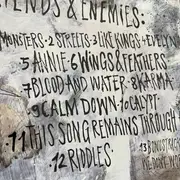 FENDS & ENEMIES:
MONSTERS · 2 STREETS · 3 LIKE KINGS · 4 EVELYN
5 ANNIE · 6 WINGS & FEATHERS
7 BLOOD AND WATER · 8 KARMA
9 CALM DOWN · 10 CALYPT
11 THIS SONG REMAINS THROUGH
12 RIDDLES
13 BONUSTRACK